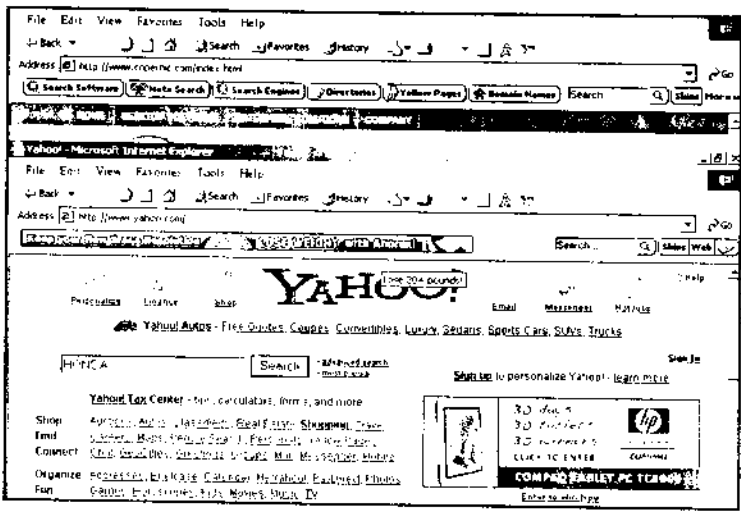 File Edit View Favorites Tools Help
Back Search Favorites History
Address http://www.copernic.com/index.html Go
Search Software Meta Search Search Engines Directories Yellow Pages Domain Names Search Skins
COMPANY
Yahoo! - Microsoft Internet Explorer
File Edit View Favorites Tools Help
Back Search Favorites History
Address http://www.yahoo.com/ Go
LOSE WEIGHT with Search... Skins Web
YAHOO! Lose 20+ pounds! Help
Personalize Finance Shop Email Messenger HotJobs
Yahoo! Autos - Free Quotes, Coupes, Convertibles, Luxury, Sedans, Sports Cars, SUVs, Trucks
Search · advanced search
Sign In
Sign up to personalize Yahoo! - learn more
Yahoo! Tax Center - tips, calculators, forms, and more
Shop Auctions, Autos, Classifieds, Real Estate, Shopping, Travel
Find Careers, Maps, People Search, Personals, Yellow Pages
Connect Chat, GeoCities, Greetings, Groups, Mail, Messenger, Mobile
Organize Addresses, Briefcase, Calendar, My Yahoo!, PayDirect, Photos
Fun Games, Horoscopes, Kids, Movies, Music, TV
30 days
30 tablets
30 winners
hp
CLICK TO ENTER
COMPAQ TABLET PC
Enter to win